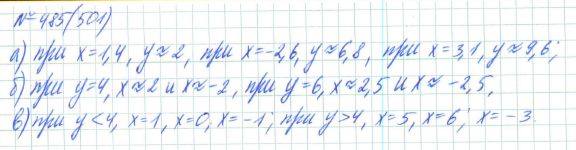 № 485(501)
а) при x=1,4, y≈2, при x=-2,6, y≈6,8, при x=3,1, y≈9,6;
б) при y=4, x≈2 и x≈-2, при y=6, x≈2,5 и x≈-2,5,
в) при y<4, x=1, x=0, x=-1; при y>4, x=5, x=6; x=-3.